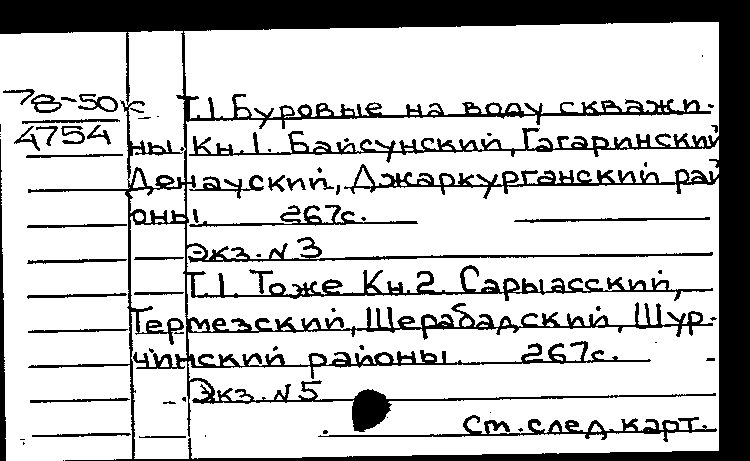 78-50к Т.1. Буровые на воду скважи-
4754 ны. Кн.1. Байсунский, Гагаринский
Денауский, Джаркурганский рай
оны. 267с.
Экз. № 3
Т.1. Тоже Кн.2. Сарыасский,
Термезский, Шерабадский, Шур-
чинский районы. 267с.
Экз. № 5
См. след. карт.